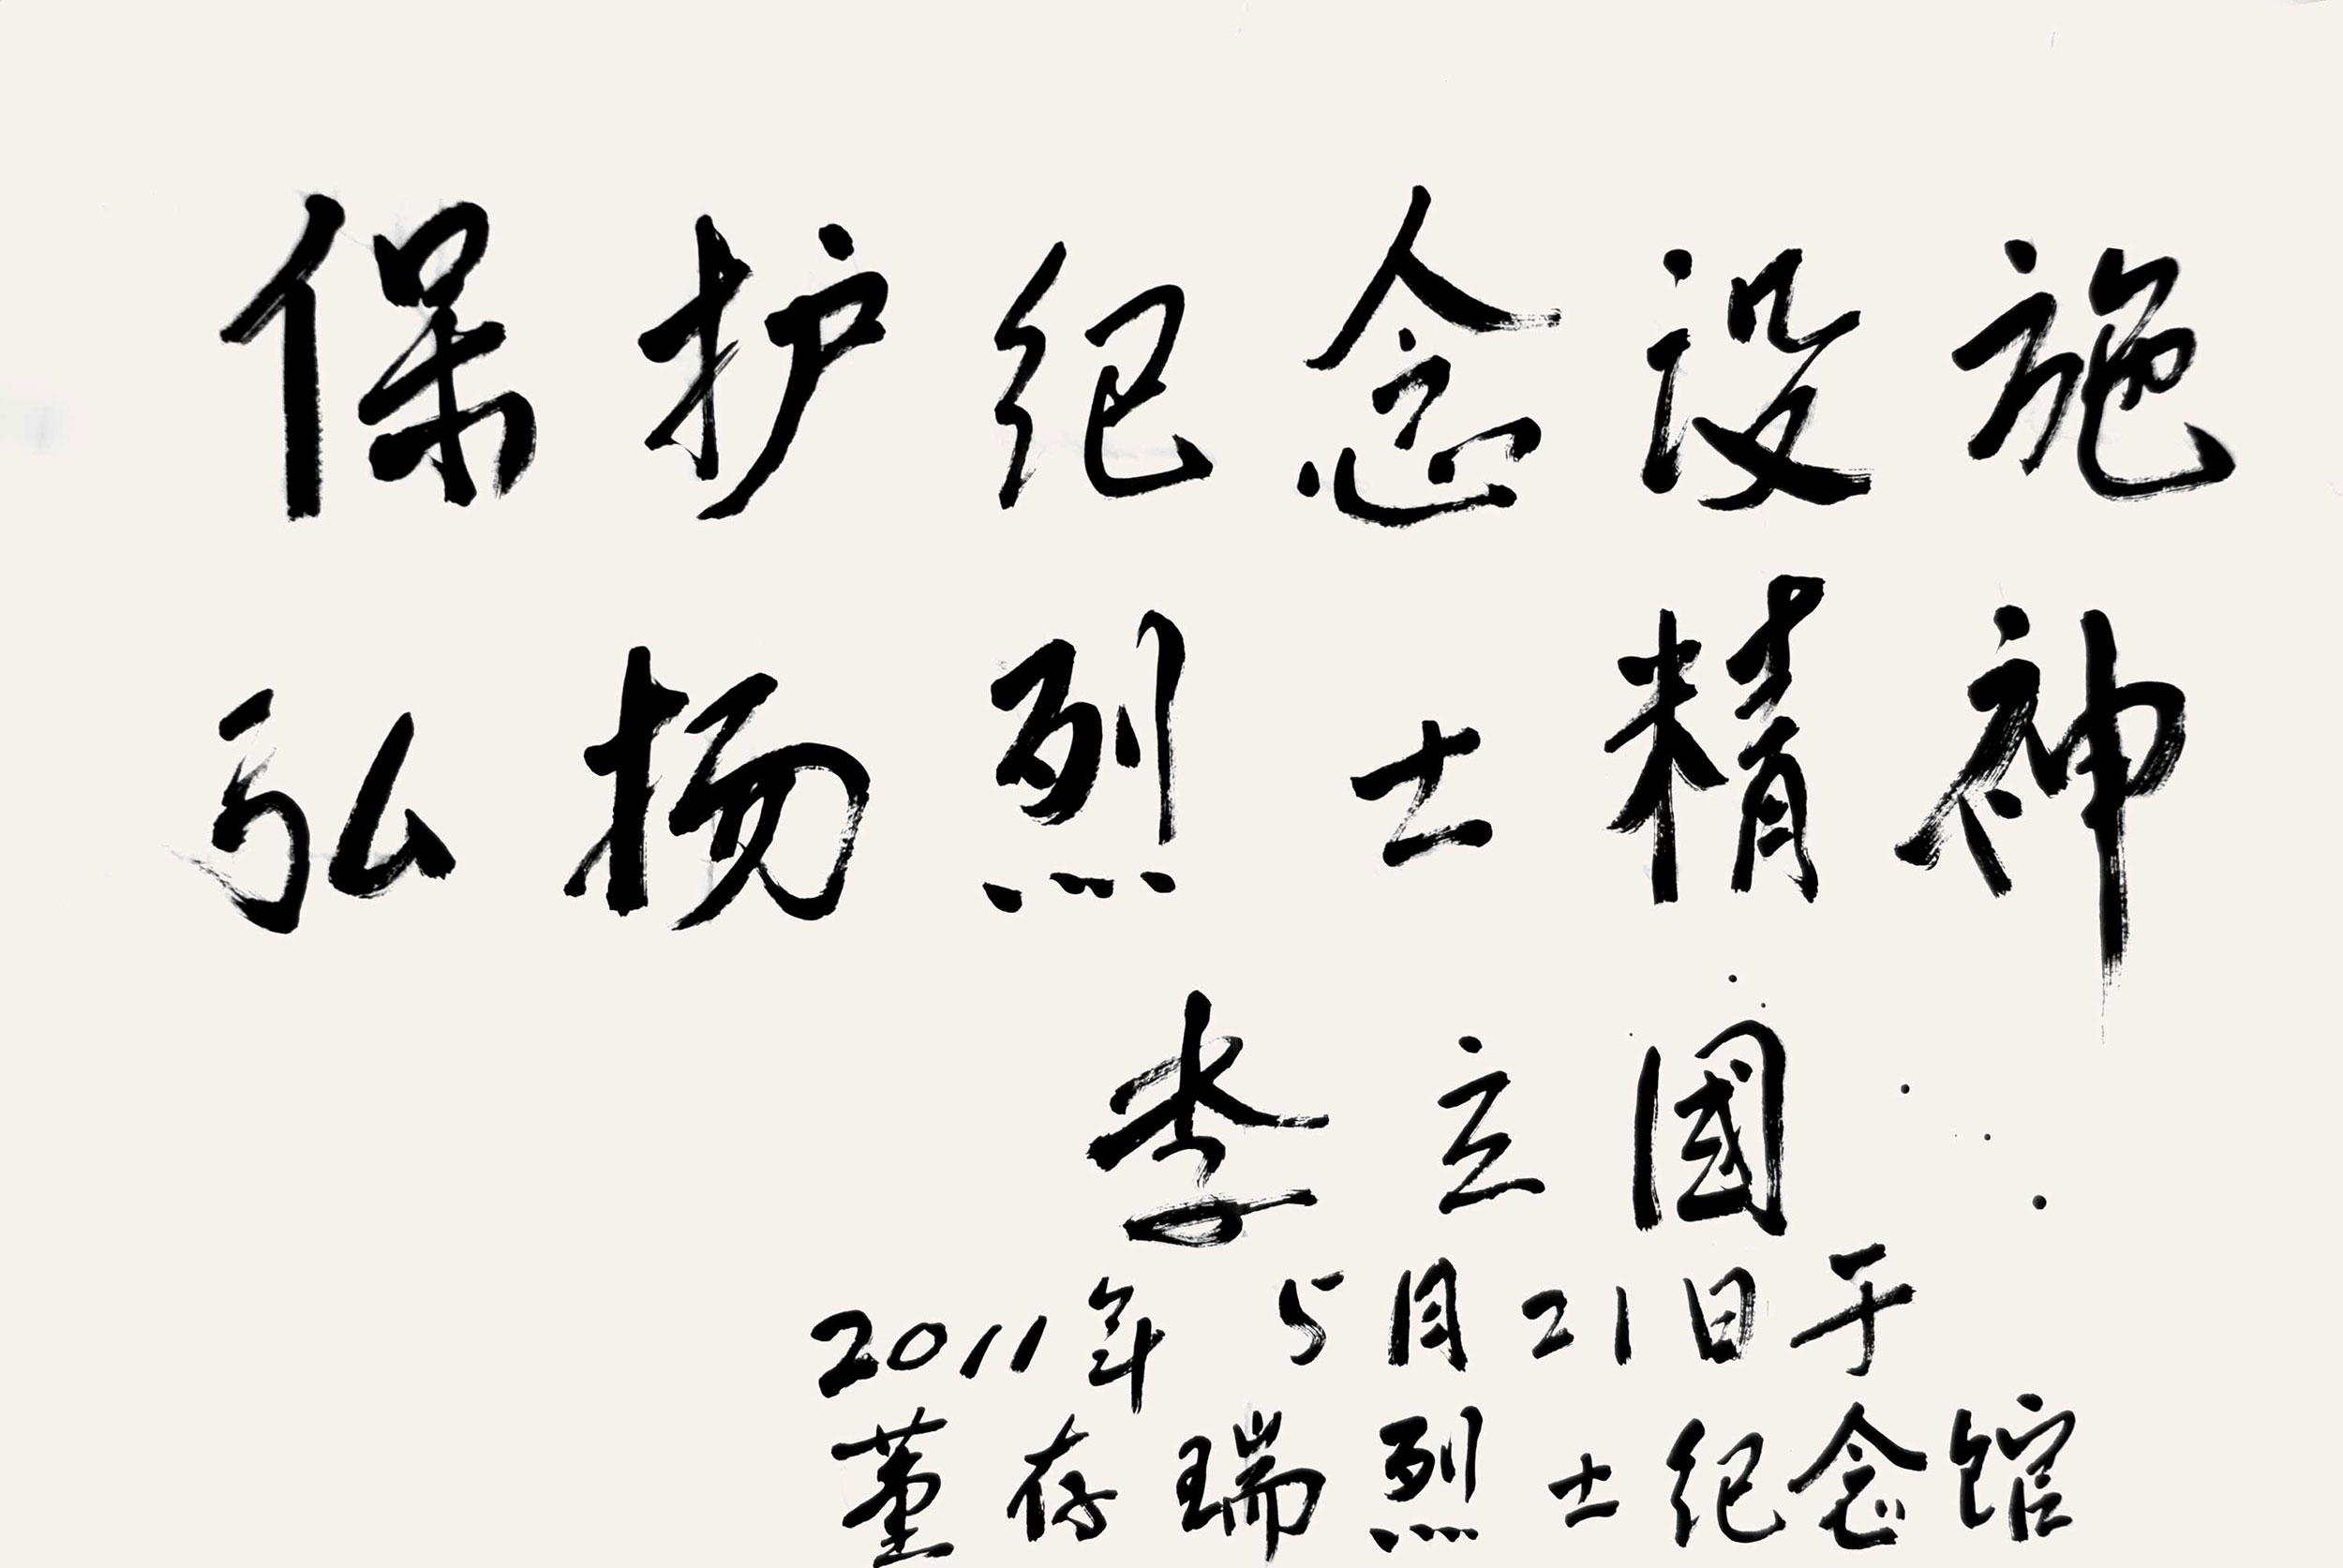 保护纪念设施
弘扬烈士精神
李立國
2011年5月21日于
董存瑞烈士纪念馆